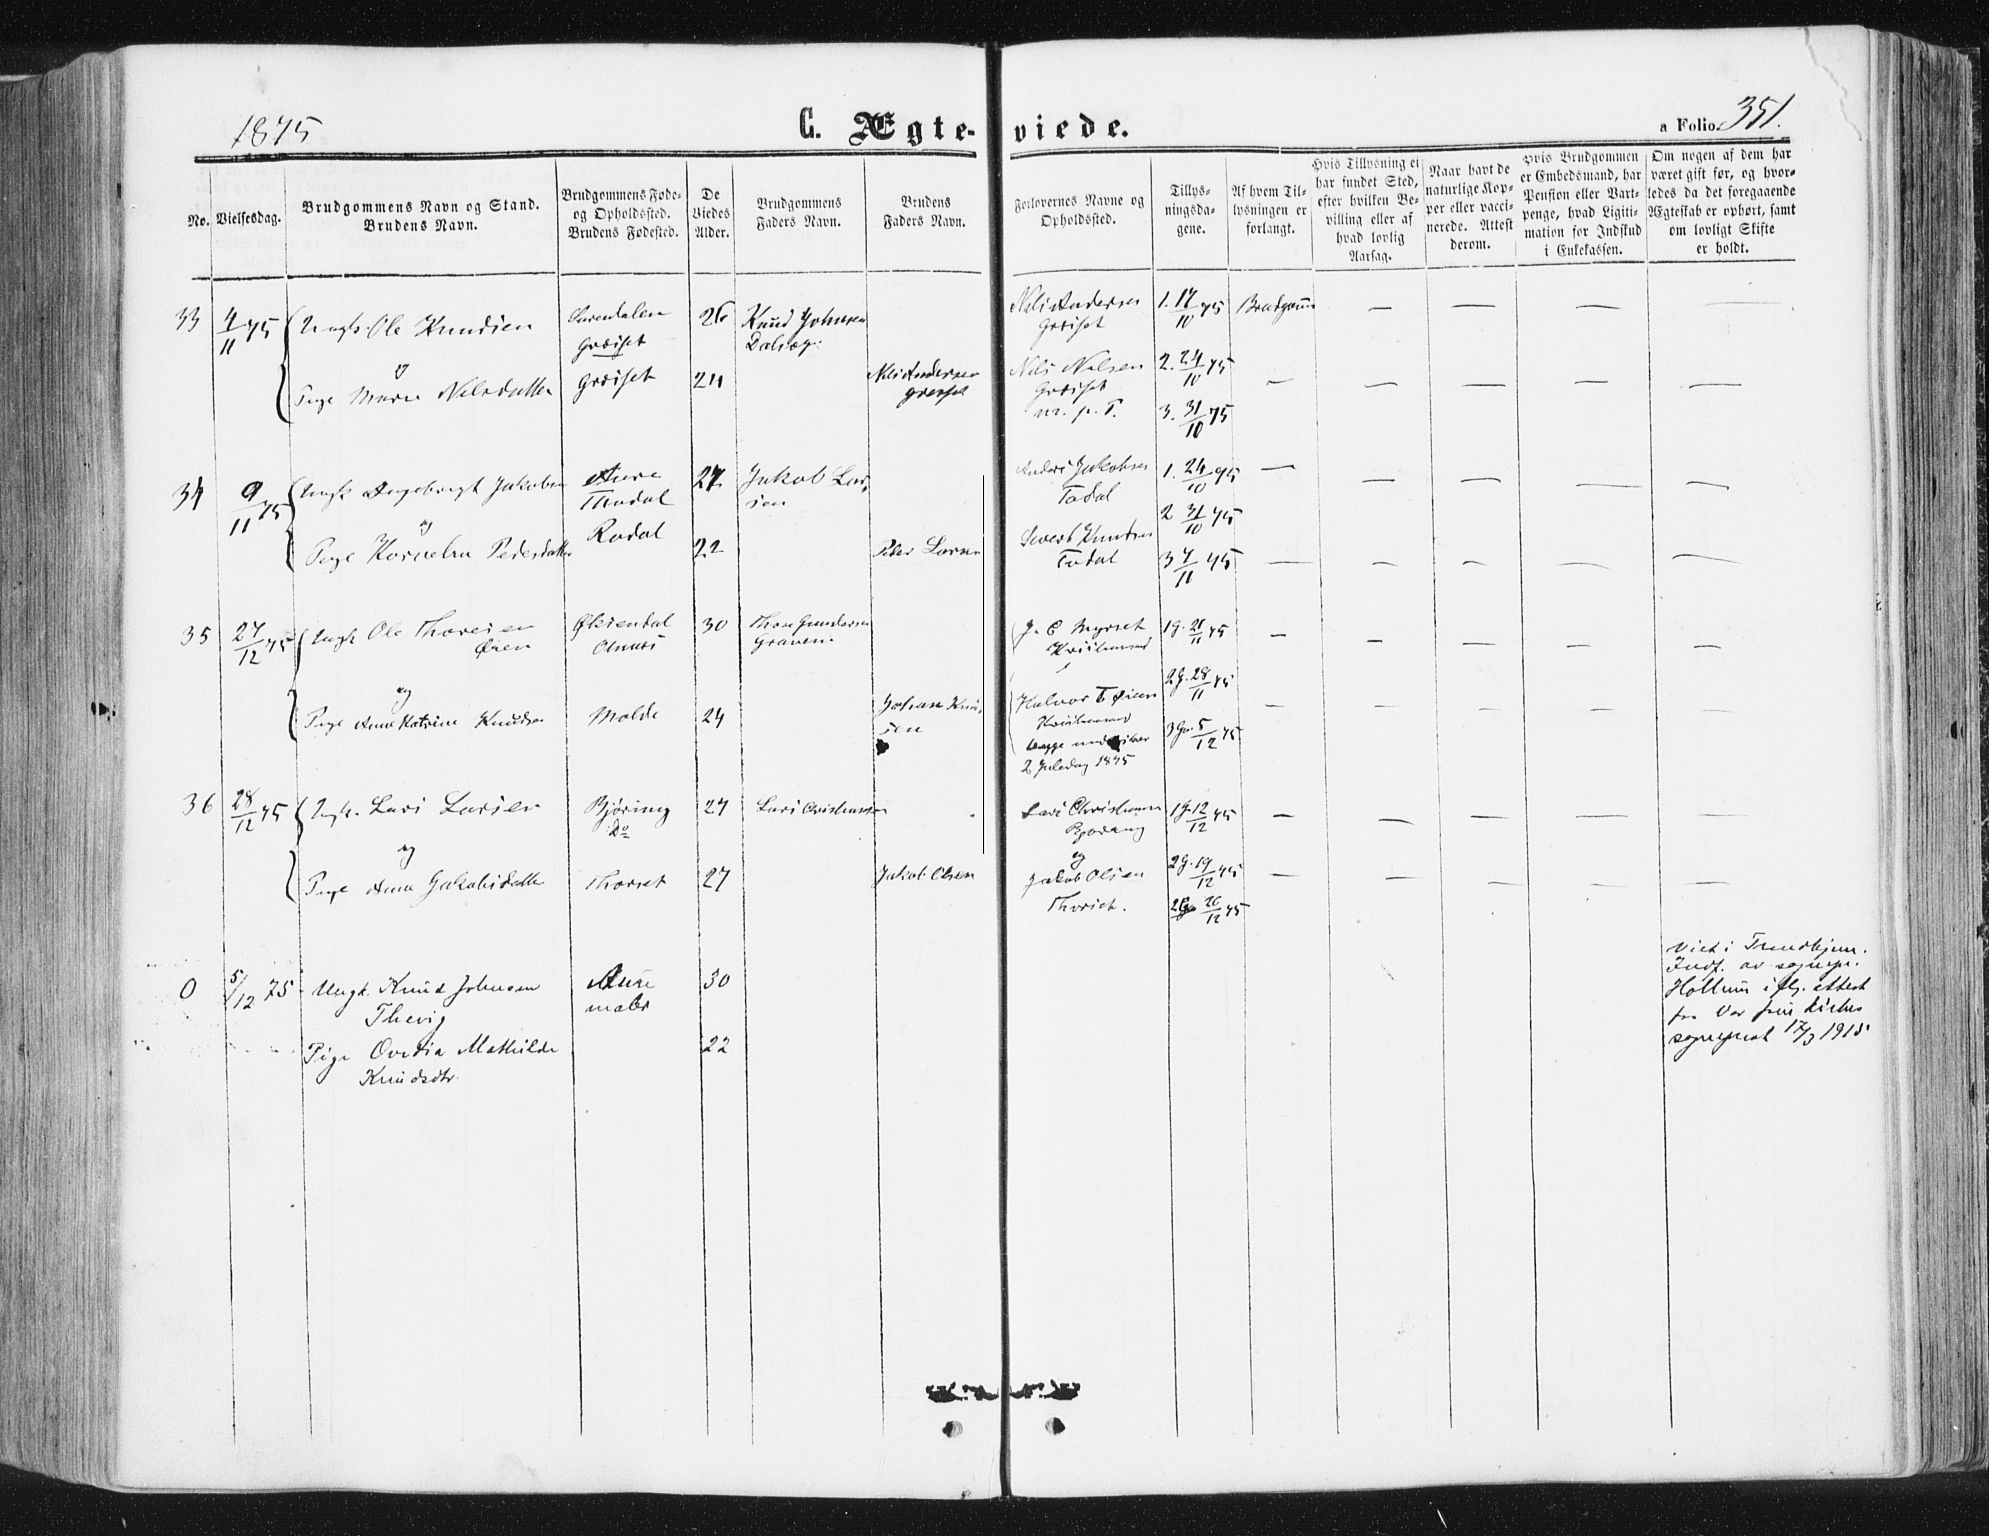 1875
C. Ægte-viede.
a Folio 351.
No.
Vielsesdag.
Brudgommens Navn og Stand.
Brudens Navn.
Brudgommens Føde-
og Opholdssted.
Brudens Fødested.
De
Viedes
Alder.
Brudgommens
Faders Navn.
Brudens
Faders Navn.
Forlovernes Navne og
Opholdssted.
Tillys-
ningsda-
gene.
Af hvem Til-
lysningen er
forlangt.
Hvis Tillysning ei
har fundet Sted,
efter hvilken Be-
villing eller af
hvad lovlig
Aarsag.
Naar havt de
naturlige Kop-
per eller vacci-
nerede. Attest
derom.
Hvis Brudgommen
er Embedsmand, har
Pension eller Vart-
penge, hvad Ligiti-
mation for Indskud
i Enkekassen.
Om nogen af dem har
været gift før, og hvor-
ledes da det foregaaende
Ægteskab er ophørt, samt
om lovligt Skifte
er holdt.
33
4/11 75
Ungk. Ole Knudsen
og
Pige Marie Nilsdatter
Surendalen
Græset
Græset
26
24
Knud Johnsen
Nils Andersen
Græset
Nils Andersen
Græset
Nils Nilsen
Græset
1. 17/10 75
2. 24/10 75
3. 31/10 75
Brudgom
34
9/11 75
Ungk Ingebrigt Jakobsen
og
Pige Kornelia Pedersdatter
Aure
Thodal
Rodal
27
22
Jakob Lar-
sen
Peder Larsen
Anders Jakobsen
Todal
Sivert Knudsen
Todal
1. 24/10 75
2 31/10 75
3 7/11 75
35
27/12 75
Ungk Ole Thoresen
Øien
og
Pige Anne Katrine Knudsen
Øksendal
Molde
30
24
Thore Gundersen
Johan Knud-
sen
J. C Myrset
Kristiansund
Halvor T Øien
Kristiansund
2 Juledag 1875
1 G. 21/11 75
2 G. 28/11 75
3 G. 5/12 75
36
28/12 75
Ungk. Lars Larsen
og
Pige Anne Jakobsdatter
Bjøring
Do
Thorset
27
27
Lars Christiansen
Jakob Olsen
Lars Christiansen
og
Jakob Olsen
Thorset.
1 G. 12/12 75
2 G. 19/12 75
26/12 75
0
5/12 75
Ungk. Knud Johnsen
Thevig
Pige Ovedia Mathilde
Knudsdtr.
Aure
30
22
Viet i Trondhjem.
Indf. av sognepr.
Holtum i flg. attest
fra Vor frue kirkes
sogneprest 17/3 1915